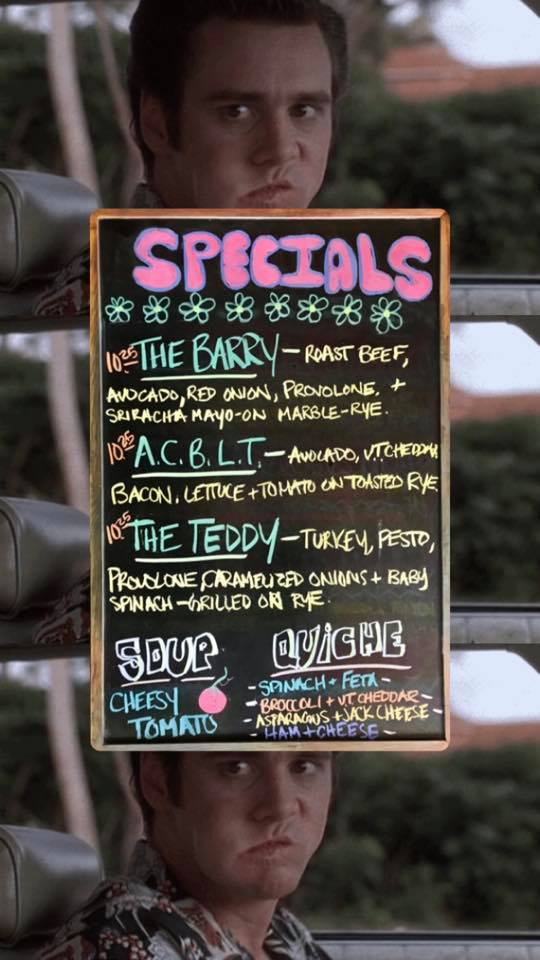 SPECIALS
10.25 THE BARRY - ROAST BEEF,
AVOCADO, RED ONION, PROVOLONE, +
SRIRACHA MAYO-ON MARBLE-RYE.
10.25 A.C.B.L.T. - AVOCADO, VT CHEDDAR,
BACON, LETTUCE + TOMATO ON TOASTED RYE
10.25 THE TEDDY - TURKEY, PESTO,
PROVOLONE, CARAMELIZED ONIONS + BABY
SPINACH - GRILLED ON RYE.
SOUP
CHEESY
TOMATO
QUICHE
- SPINACH + FETA -
- BROCCOLI + VT CHEDDAR -
- ASPARAGUS + JACK CHEESE -
- HAM + CHEESE -